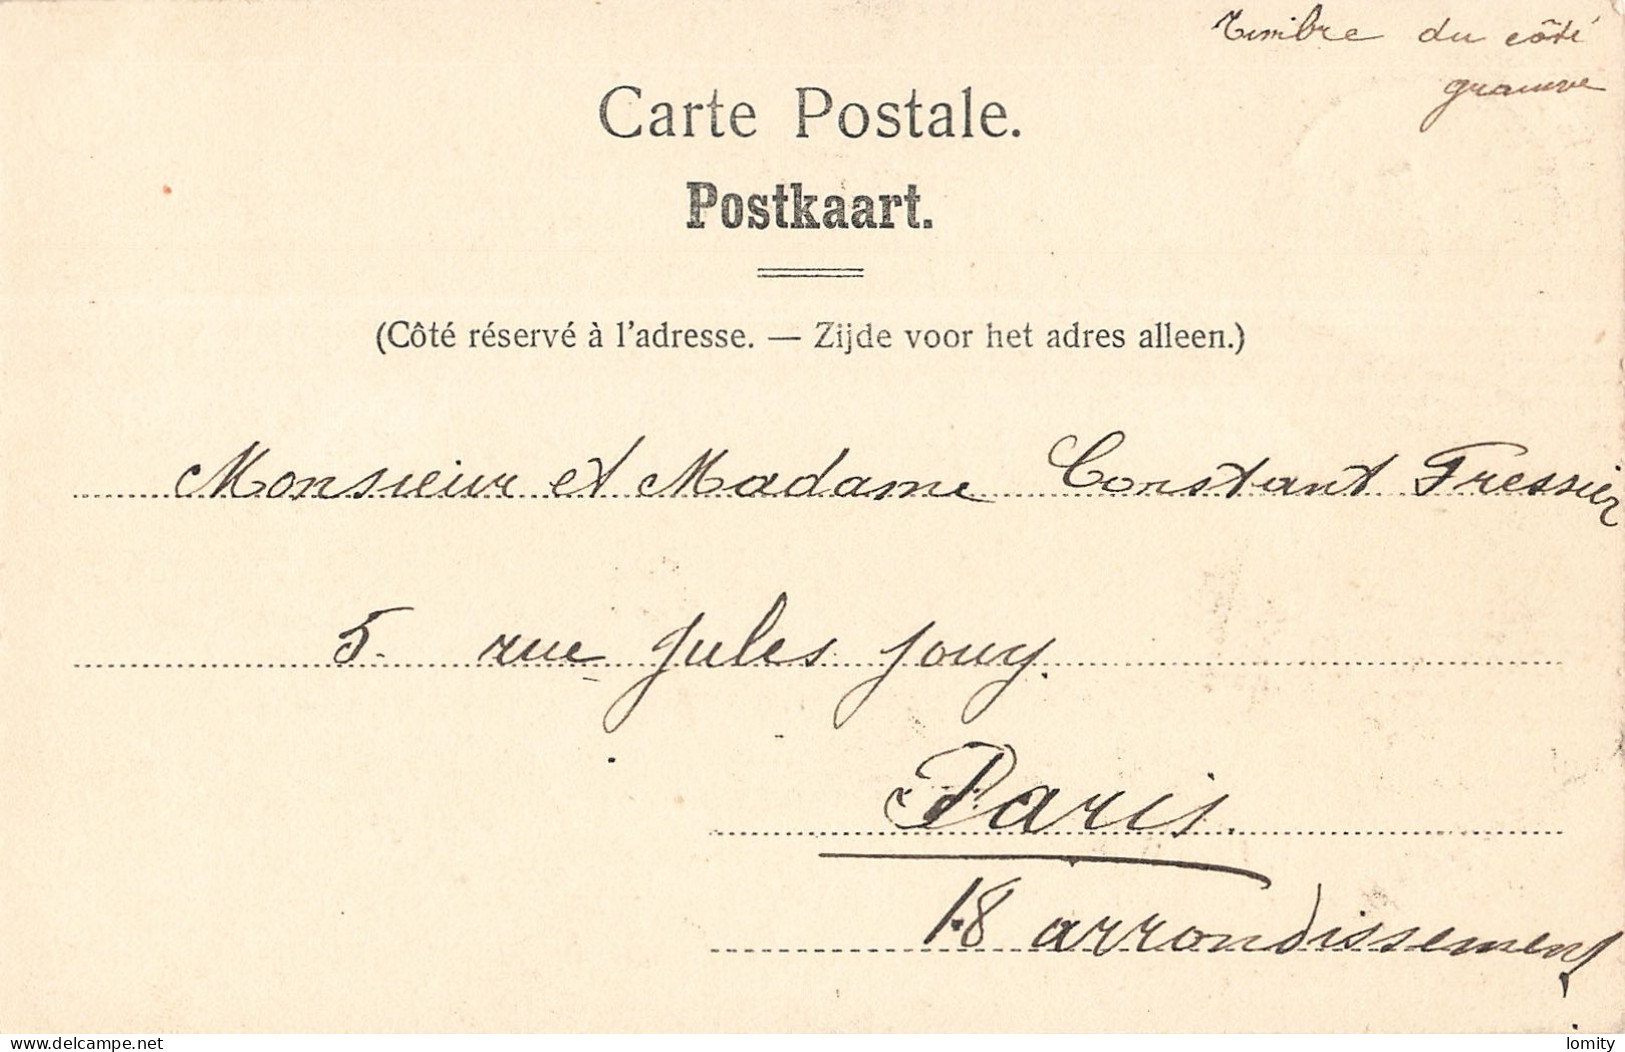 Timbre du côté
gravure
Carte Postale.
Postkaart.
(Côté réservé à l'adresse. — Zijde voor het adres alleen.)
Monsieur et Madame Constant Fressier
5. rue Jules Jouy.
Paris.
18 arrondissement
www.delcampe.net
lomity